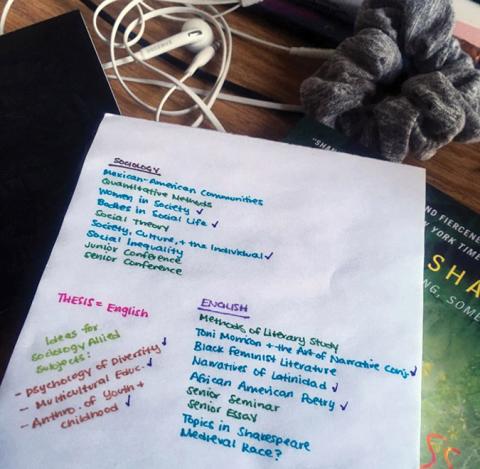 SOCIOLOGY
Mexican-American Communities
Quantitative Methods
Women in Society ✓
Bodies in Social Life ✓
Social Theory
Society, Culture, + the Individual ✓
Social Inequality
Junior Conference
Senior Conference
THESIS = English
Ideas for
Sociology Allied
Subjects:
- Psychology of Diversity ✓
- Multicultural Educ. ✓
- Anthro. of Youth +
childhood ✓
ENGLISH
Methods of Literary Study
Toni Morrison + the Art of Narrative Conj. ✓
Black Feminist Literature
Narratives of Latinidad ✓
African American Poetry ✓
Senior Seminar
Senior Essay
Topics in Shakespeare
Medieval Race?
"SHAR
ND FIERCENE
W YORK TIME
SHA
NG, SOME
SC